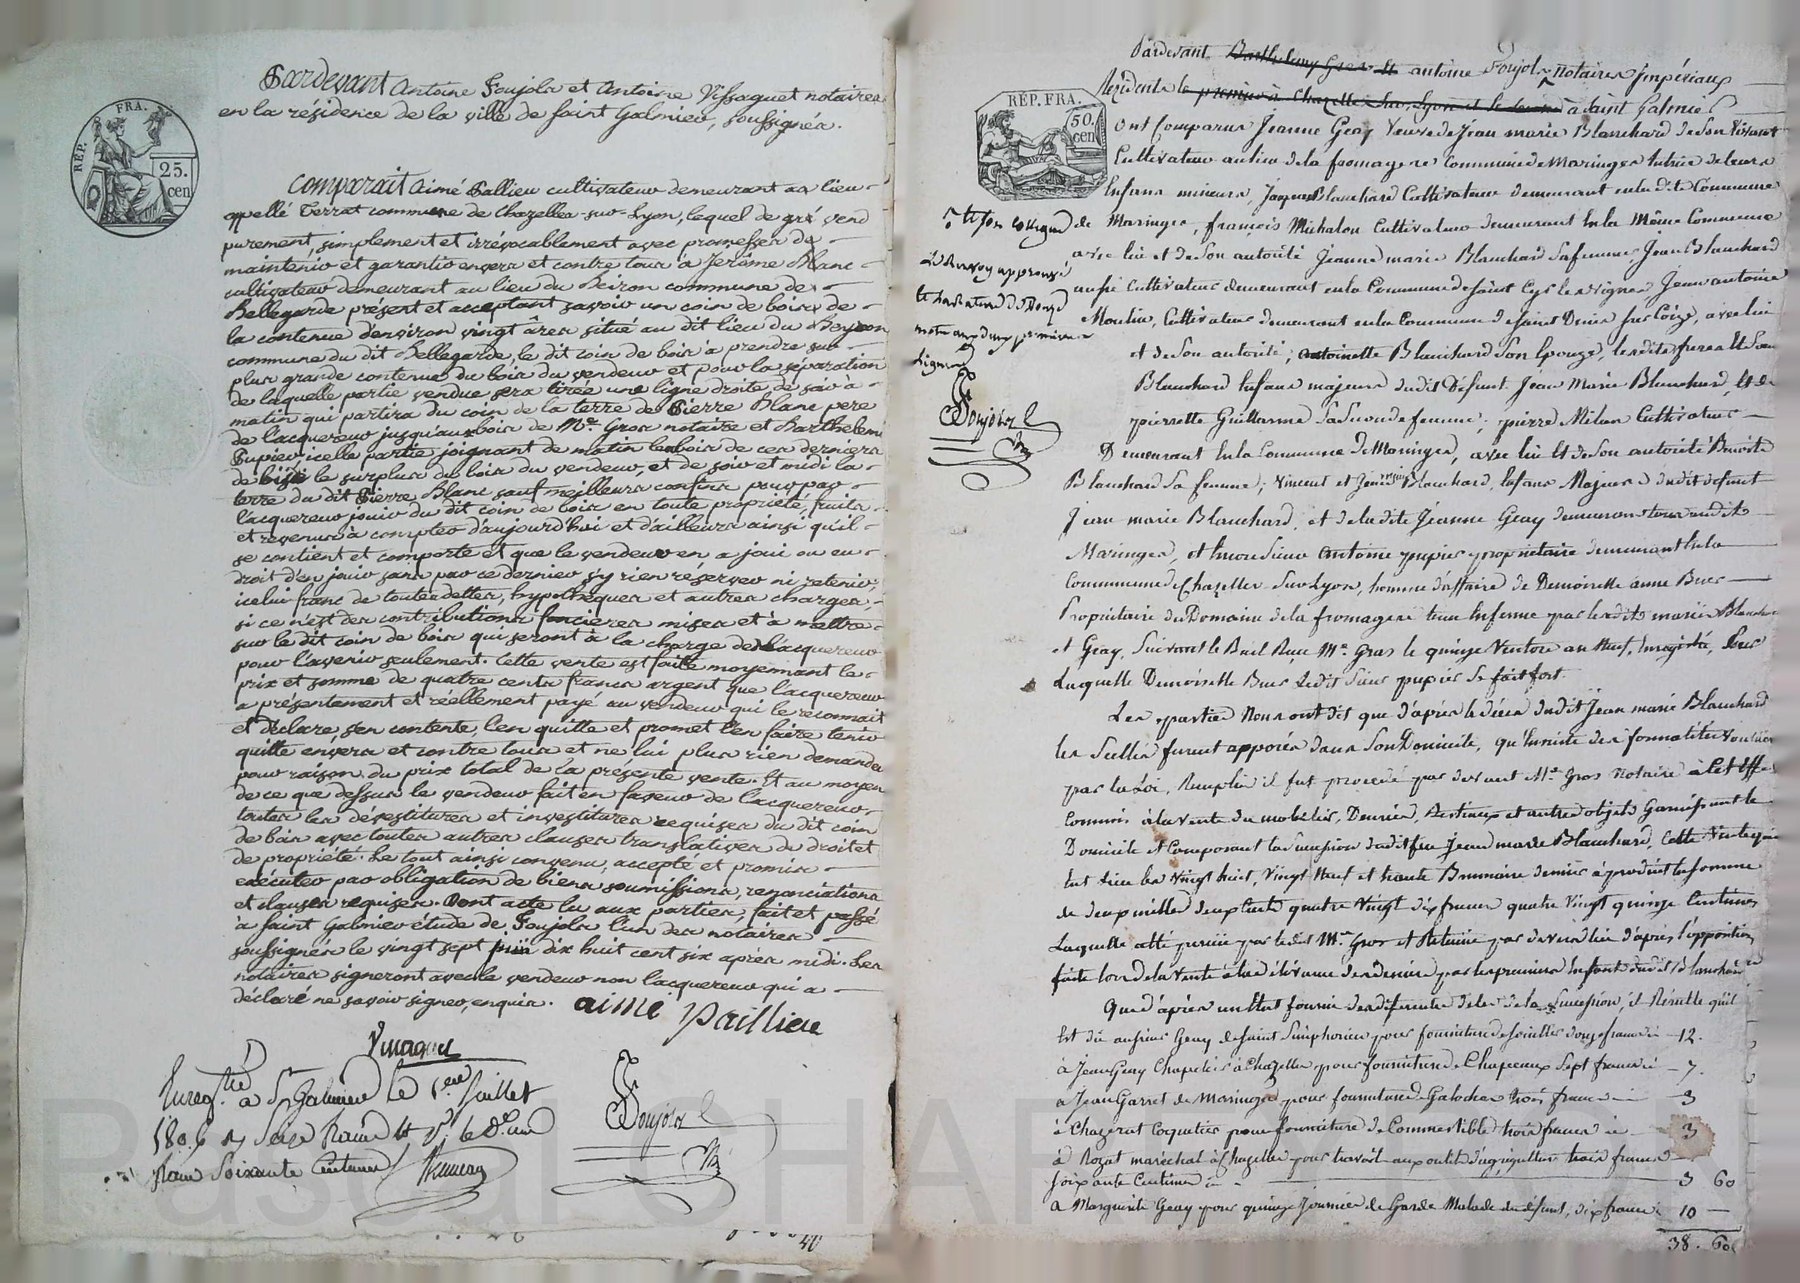 Pardevant Antoine Poujola et Antoine Vissaguet notaires
en la résidence de la ville de saint Galmier, soussignés.
RÉP. FRA.
25.
cen
Comparait Aimé Pallieu cultivateur demeurant au lieu
appellé Terrat commune de Chazelles-sur-Lyon, lequel de gré vend
purement, simplement et irrévocablement avec promesses de
maintenir et garantir envers et contre tous à Jerôme Blanc
cultivateur demeurant au lieu du Peiron commune de
Bellegarde présent et acceptant savoir un coin de bois de
la contenue d'environ vingt âres situé au dit lieu du Peyron
commune du dit Bellegarde, le dit coin de bois à prendre sur
plus grande contenue du bois du vendeur et pour la séparation
de laquelle partie vendue sera tirée une ligne droite de soir à
matin qui partira du coin de la terre de Pierre Blanc pere
de l'acquereur jusqu'aux bois de Mr. Gros notaire et Barthélemi
Pupier, icelle partie joignant de matin les bois de ces derniers
de bise le surplus du bois du vendeur, et de soir et midi la
terre du dit Pierre Blanc sauf meilleurs confins pour par
l'acquereur jouir du dit coin de bois en toute propriété, fruits
et revenus à compter d'aujourd'hui et d'ailleurs ainsi qu'il
se contient et comporte et que le vendeur en a joui ou eu
droit d'en jouir sans par ce dernier s'y rien réserver ni retenir,
icelui franc de toutes dettes, hypothèques et autres charges,
si ce n'est des contributions foncières mises et à mettre
sur le dit coin de bois qui seront à la charge de l'acquereur
pour l'avenir seulement. Cette vente est faite moyennant le
prix et somme de quatre cents francs argent que l'acquereur
a présentement et réellement payé au vendeur qui le reconnait
et déclare, s'en contente, l'en quitte et promet l'en faire tenir
quitte envers et contre tous et ne lui plus rien demander
pour raison du prix total de la présente vente. Et au moyen
de ce que dessus le vendeur fait en faveur de l'acquereur
toutes les dévestitures et investitures requises du dit coin
de bois avec toutes autres clauses translatives du droit et
de propriété. Le tout ainsi convenu, accepté et promis
exécuter par obligation de biens soumissions, renonciations
et clauses requises. Dont acte lu aux parties, fait et passé
à saint Galmier étude de Poujola l'un des notaires
soussignés le vingt sept juin dix huit cent six après midi. Les
notaires signeront avec le vendeur non l'acquereur qui a
déclaré ne savoir signer, enquis. aimé pallieu
Vissaguet
Enregtré à St Galmier le 1er Juillet
1806 Seize francs
francs soixante Centimes
Poujola
Pardevant Barthelemy Gros et antoine Poujola notaires impériaux
Résidents le premier à Chazelle Sur Lyon et le second à Saint Galmier
RÉP. FRA.
50.
cen
Ont Comparus Jeanne Geay Veuve de Jean marie Blanchard de Son Vivant
Cultivateur au lieu de la fromagere Commune de Maringes tutrice de leurs
Enfans mineurs, Jacques Blanchard Cultivateur demeurant en la dite Commune
de Maringes, françois Michalon Cultivateur demeurant En la Même Commune
avec lui et de Son autorité Jeanne marie Blanchard Sa femme, Jean Blanchard
aussi Cultivateur demeurant en la Commune de Saint Cyr les vignes Jean antoine
Moulin, Cultivateur demeurant en la Commune de Saint Denis Sur Coize, avec lui
et de Son autorité, antoinette Blanchard Son Epouse, lesdits freres et Sœurs
Blanchard Enfans majeurs dudit Défunt Jean Marie Blanchard, Et de
pierrette Guillarme Sa Seconde femme, pierre Milan Cultivateur
Demeurant En la Commune de Maringes, avec lui Et de Son autorité Benoite
Blanchard Sa femme, Vincent et Blanchard, Enfans Majeurs dudit defunt
Jean marie Blanchard, et de ladite Jeanne Geay demeurans tous audit
Maringes, et Encore Sieur antoine pupier propriétaire demeurant En la
Commune de Chazelles Sur Lyon, homme d'affaire de Demoiselle anne Buer
Propriétaire du Domaine de la fromagere tenu En ferme par lesdits mariés Blanchard
et Geay, Suivant le Bail Reçu Me. Gros le quinze Ventose an Neuf, Enregistré, pour
Laquelle Demoiselle Buer Ledit Sieur pupier Se fait fort.
Poujola
Les parties Nous ont dit que d'après le décès dudit Jean marie Blanchard
les Scellés furent apposés dans Son Domicile, qu'Ensuite des formalités Voulues
par la Loi, Remplies il fut procedé par devant Me. Gros Notaire à Cet Effet
Commis à la vente du mobilier, Denrées, Bestiaux et autres objets Garnissant le
Domicile et Composant la Succession dudit feu Jean marie Blanchard, Cette Vente qui a
Eut Lieu les Vingt huit, Vingt Neuf et trente Brumaire dernier à produit la Somme
de deux mille deux Cent quatre Vingt dix francs quatre Vingt quinze Centimes
Laquelle a été perçue par ledit Me. Gros et Retenue par devers lui d'après l'opposition
faite lors de la Vente à la délivrance des deniers par les premiers Enfants dudit Blanchard
Que d'après un Etat fourni des differentes dettes de la Succession, il Résulte qu'il
Est dû au Sieur Geay de Saint Simphorien pour fourniture de Souliers douze francs ci - 12.
à Jean Geay Chapelier à Chazelles pour fourniture de Chapeaux Sept francs ci - 7.
à Jean Garret de Maringes pour fourniture de Galoches trois francs ci 3
à Chazerat Coquetier pour fourniture de Commestible trois francs ci 3
à Rozat maréchal à Chazelles pour travail aux outils d'agriculture trois francs
Soixante Centimes ci - 3 60
à Marguerite Geay pour quinze Journées de Garde Malade du défunt, dix francs ci 10 -
38. 60
Pascal CHAMBON